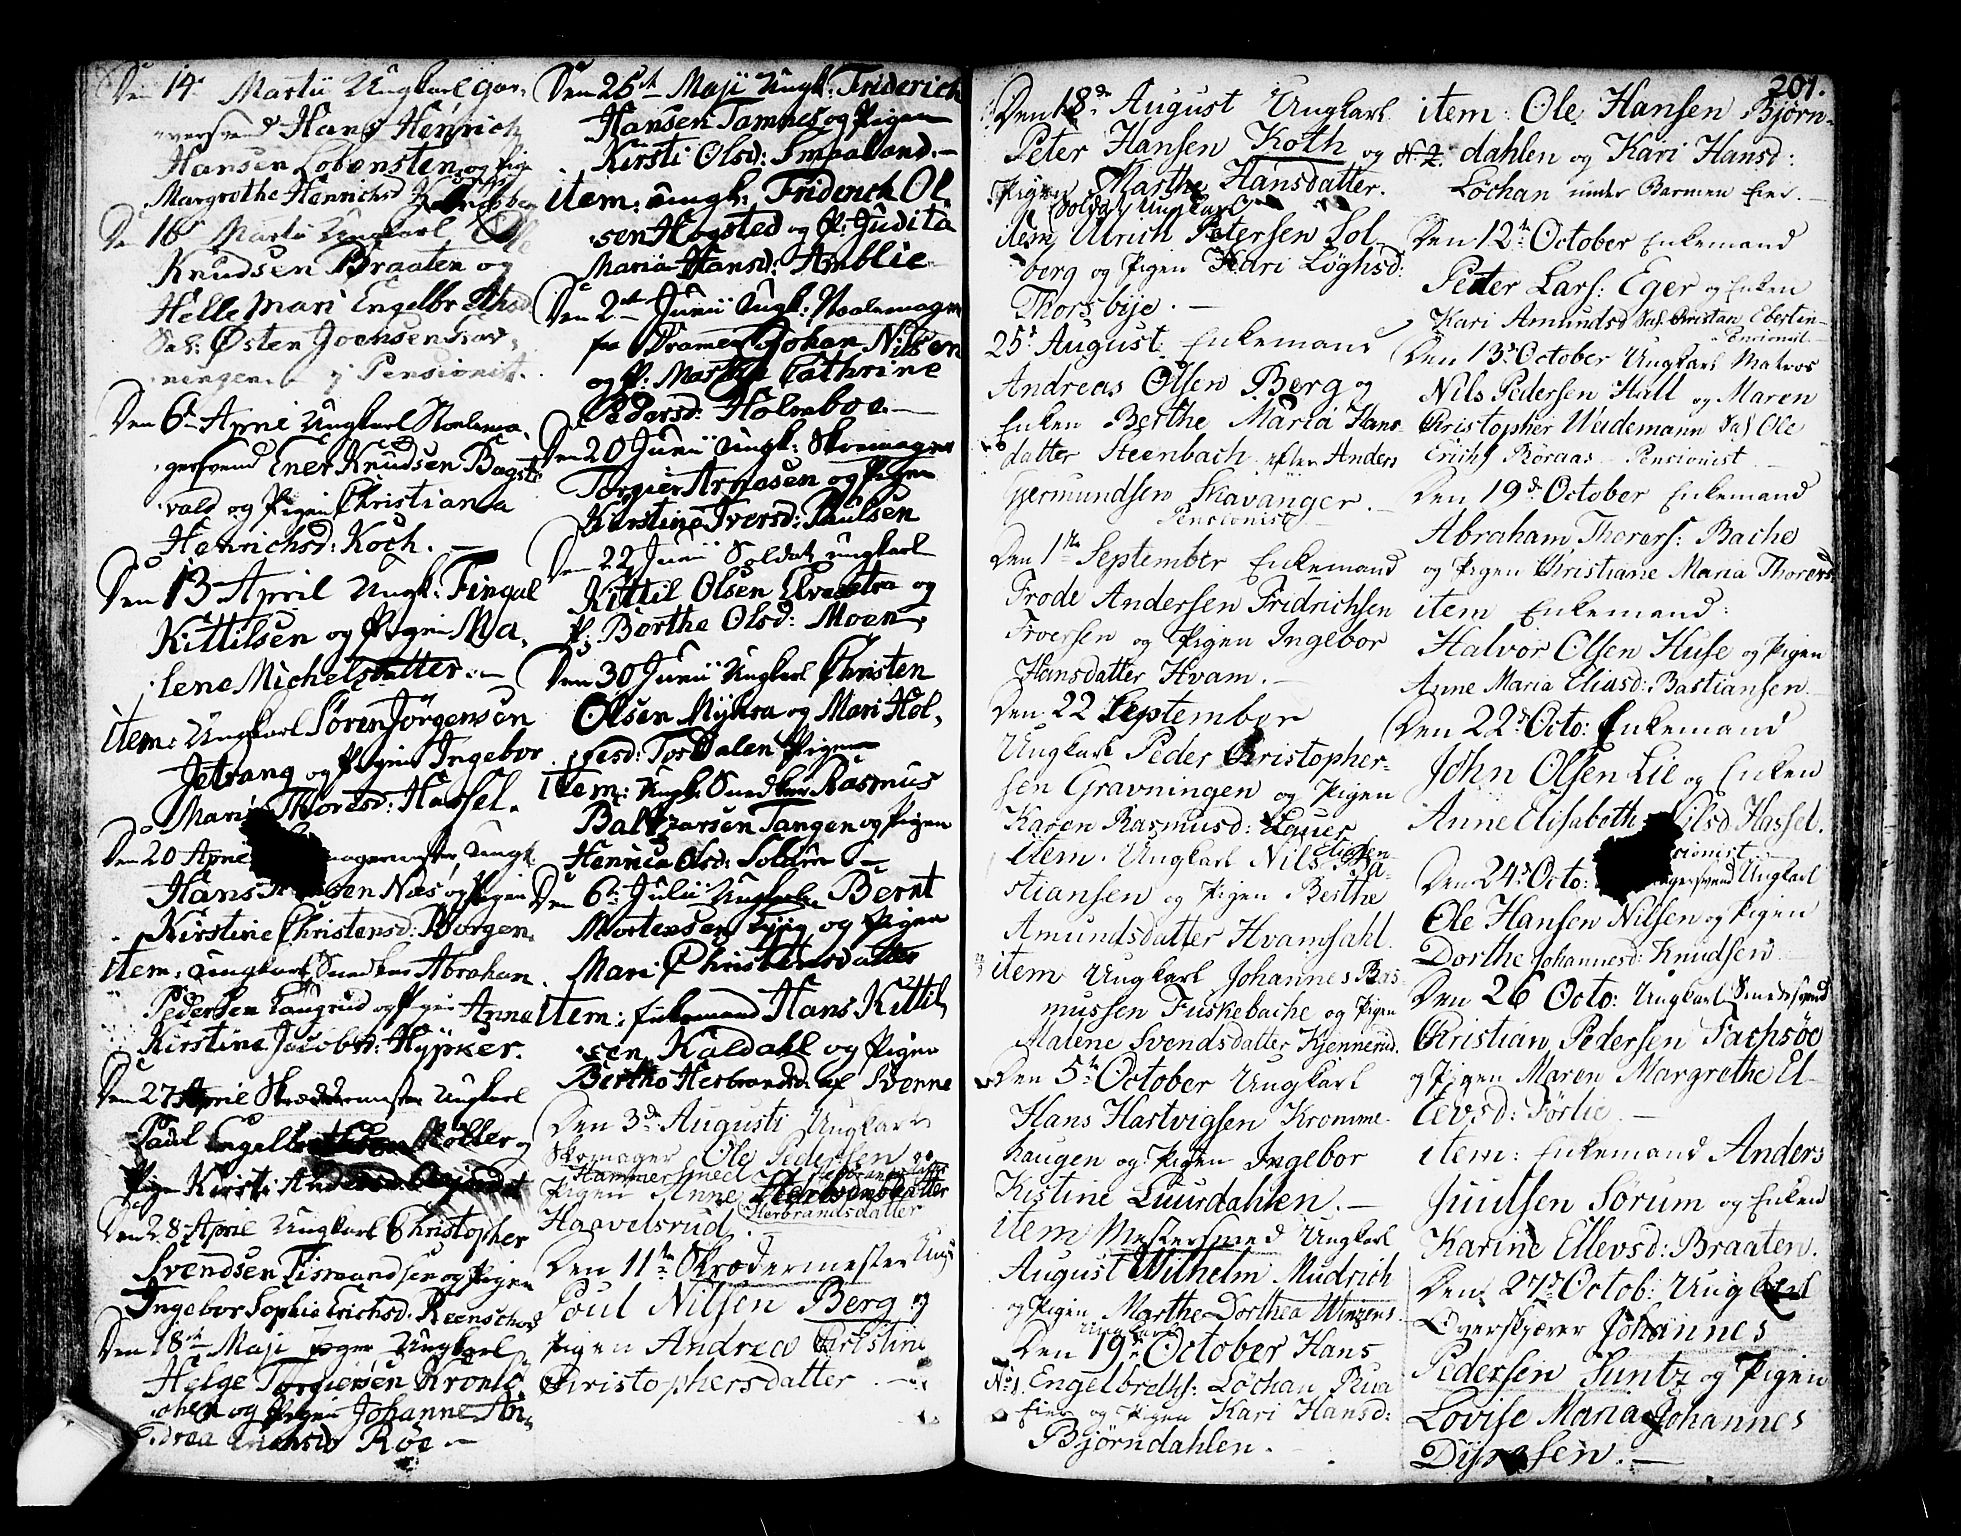 Den 14de Martii Ungkarl Gar-
versvend Hans Henrich
Hansen Lobensten og Pig
Margrethe Henrichsd
Den 16de Martii Ungkarl Ole
Knudsen Braaten og
Helle Mari Engelbrethsd
Sal: Østen Joensen
ningen Pensionist.
Den 6te April Ungkarl Stolema-
gersvend Ener Knudsen Bagste-
vold og Pigen Christiana
Henrichsd: Koch. —
Den 13 April Ungk: Fingal
Kittilsen og Pigen Ma-
lene Michelsdatter. —
item: Ungkarl Sørenjørgensen
Jetrang og Pigen Ingebor
Mari Thoresd: Hassel.
Den 20 April magermester Ungk:
Hans sen Næs og Pigen
Kirstine Christensd: Borgen.
item: Ungkarl Snedker Abrahan
Pedersen Laugrud og Pigen Anne
Kirstine Jacobsd: Hÿpker.
Den 27 April Skreddermester Ungkarl
Paul Engelbrethsen Møller og
Pigen Kirsti Andersd:
Den 28 April Ungkarl Christopher
Svendsen Tismandsen og Pigen
Ingebor Sophia Erichsd: Reenschou
Den 18de Maji Ungkarl
Helge Torgiersen Kronlö-
chen og Pigen Johanne An-
drea Erichsd Röe. —
Den 25de Maji Ungk: Friderich
Hansen Tamnes og Pigen
Kirsti Olsd: Smaaland. —
item: Ungk: Friderich Ol-
sen Hogsted og P: Judita
Maria Hansd: Amblie
Den 2den Junii Ungk: Stolemager
fra Dramen Johan Nilsen
og P: Marthe Cathrine
Pedersd: Holmboe. —
Den 20 Junii Ungk: Skomager
Torgier Arnesen og Pigen
Kirstine Iversd: Paulsen
Den 22 Junii Soldat ungkarl
Kittil Olsen Elvestra og
P: Børthe Olsd: Moen.
Den 30 Junii Ungkarl Christen
Olsen Mykra og Mari Hol-
gesd: Tordalen Pigen
Item: Ungk: Snedker Rasmus
Baltzarsen Tangen og Pigen
Hennica Olsd: Solum. —
Den 6te Julii Ungkarl Bernt
Mortensen og Pigen
Mari Christensdatter
Item: Enkemand Hans Kittil-
sen Kaldahl og Pigen
Berthe Herbrandsd: af Rønne
Den 3de Augusti Ungkarl
Skomager Ole Pedersen og
Hammersmed
Pigen Anne
Herbrandsdatter
Haavelsrud.
Den 11te Skrædermester Ung
Poul Nilsen Berg og
Pigen Andrea Kirstine
Christophersdatter. —
201.
Den 18de August Ungkarl
Peter Hansen Koth og
Pigen Marthe Hansdatter.
Soldat Ungkarl
item Ulrich Petersen Sol-
berg og Pigen Kari Löghsd:
Thorsbÿe. —
25de August: Enkemand
Andreas Olsen Berg og
Enken Berthe Maria Hans-
datter Steenbach efter Anders
Giermundsen Skavanger. —
Pensionist
Den 1ste September Enkemand
Frode Andersen Fridrichsen
Froersen og Pigen Ingebor
Hansdatter Hvam. —
Den 22 September
Ungkarl Peder Christopher-
sen Gravningen og Pigen
Karen Rasmusd: Lauer
item: Ungkarl Nils Sa-
stiansen og Pigen Berthe
Amundsdatter Hvamsahl.
item Ungkarl Johannes Ras-
mussen Fiskebache og Pigen
Malene Svendsdatter Kjennerud.
Den 5te October Ungkarl
Hans Hartvigsen Kromme-
haugen og Pigen Ingebor
Kistine Luurdahlen. —
item Mestersmed Ungkarl
August Wilhelm Mudrich
og Pigen Marthe Dorthea Winzens
Ungkarl
Den 19de October Hans
No 1. Engelbrethss: Löchan Rua
Eier og Pigen Kari Hansd:
Bjørndahlen. —
item: Ole Hansen Bjørn-
No 2. dahlen og Kari Hansd:
Löchan under Barmen Eier. —
Den 12te October Enkemand
Peter Lars: Eger og Enken
Kari Amundsd Sal. Christan Ebertin-
Pensionist —
Den 13de October Ungkarl Matros
Nils Pedersen Hall og Maren
Christopher Weidemann Sal Ole
Erichs Röraas Pensionist —
Den 19de October Enkemand
Abraham Thorers: Bache
og Pigen Christiane Maria Thorers
item Enkemand:
Halvor Olsen Huse og Pigen
Anne Maria Eliasd: Bastiansen.
Den 22de Octo: Enkemand
John Olsen Lie og Enken
Anne Elisabeth Nilsd Hassel.
sionist
Den 24de Octo: gersvend Ungkarl
Ole Hansen Nilsen og Pigen
Dorthe Johannesd: Knudsen.
Den 26 Octo: Ungkarl Smedesvend
Christian Pedersen Fachsöe
og Pigen Maren Margrethe El-
levsd: Førlie. —
item: Enkemand Anders
Juulsen Sörum og Enken
Karine Ellevsd: Braaten.
Den 27de Octob: Ungkarl
Overskjærer Johannes
Pedersen Suntz og Pigen
Lovise Maria Johannes